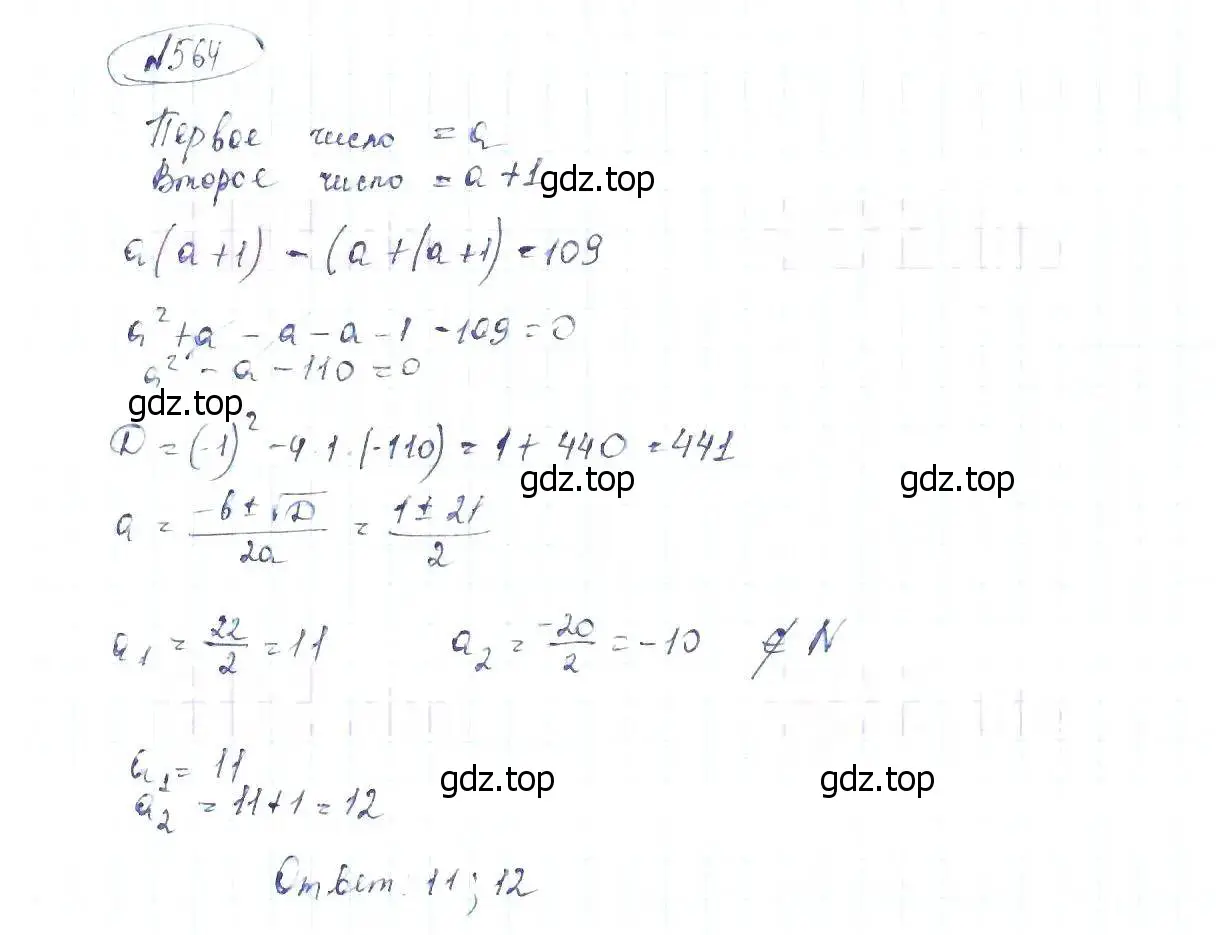 №564
Первое число = a
Второе число = a + 1
gdz.top
a(a+1) - (a+(a+1) = 109
a² + a - a - a - 1 - 109 = 0
a² - a - 110 = 0
gdz.top
D = (-1)² - 4·1·(-110) = 1 + 440 = 441
gdz.top gdz.top
a = (-b ± √D)/2a = (1 ± 21)/2
a₁ = 22/2 = 11 a₂ = -20/2 = -10 ∉ N
a₁ = 11
gdz.top gdz.top
a₂ = 11+1 = 12
Ответ: 11; 12